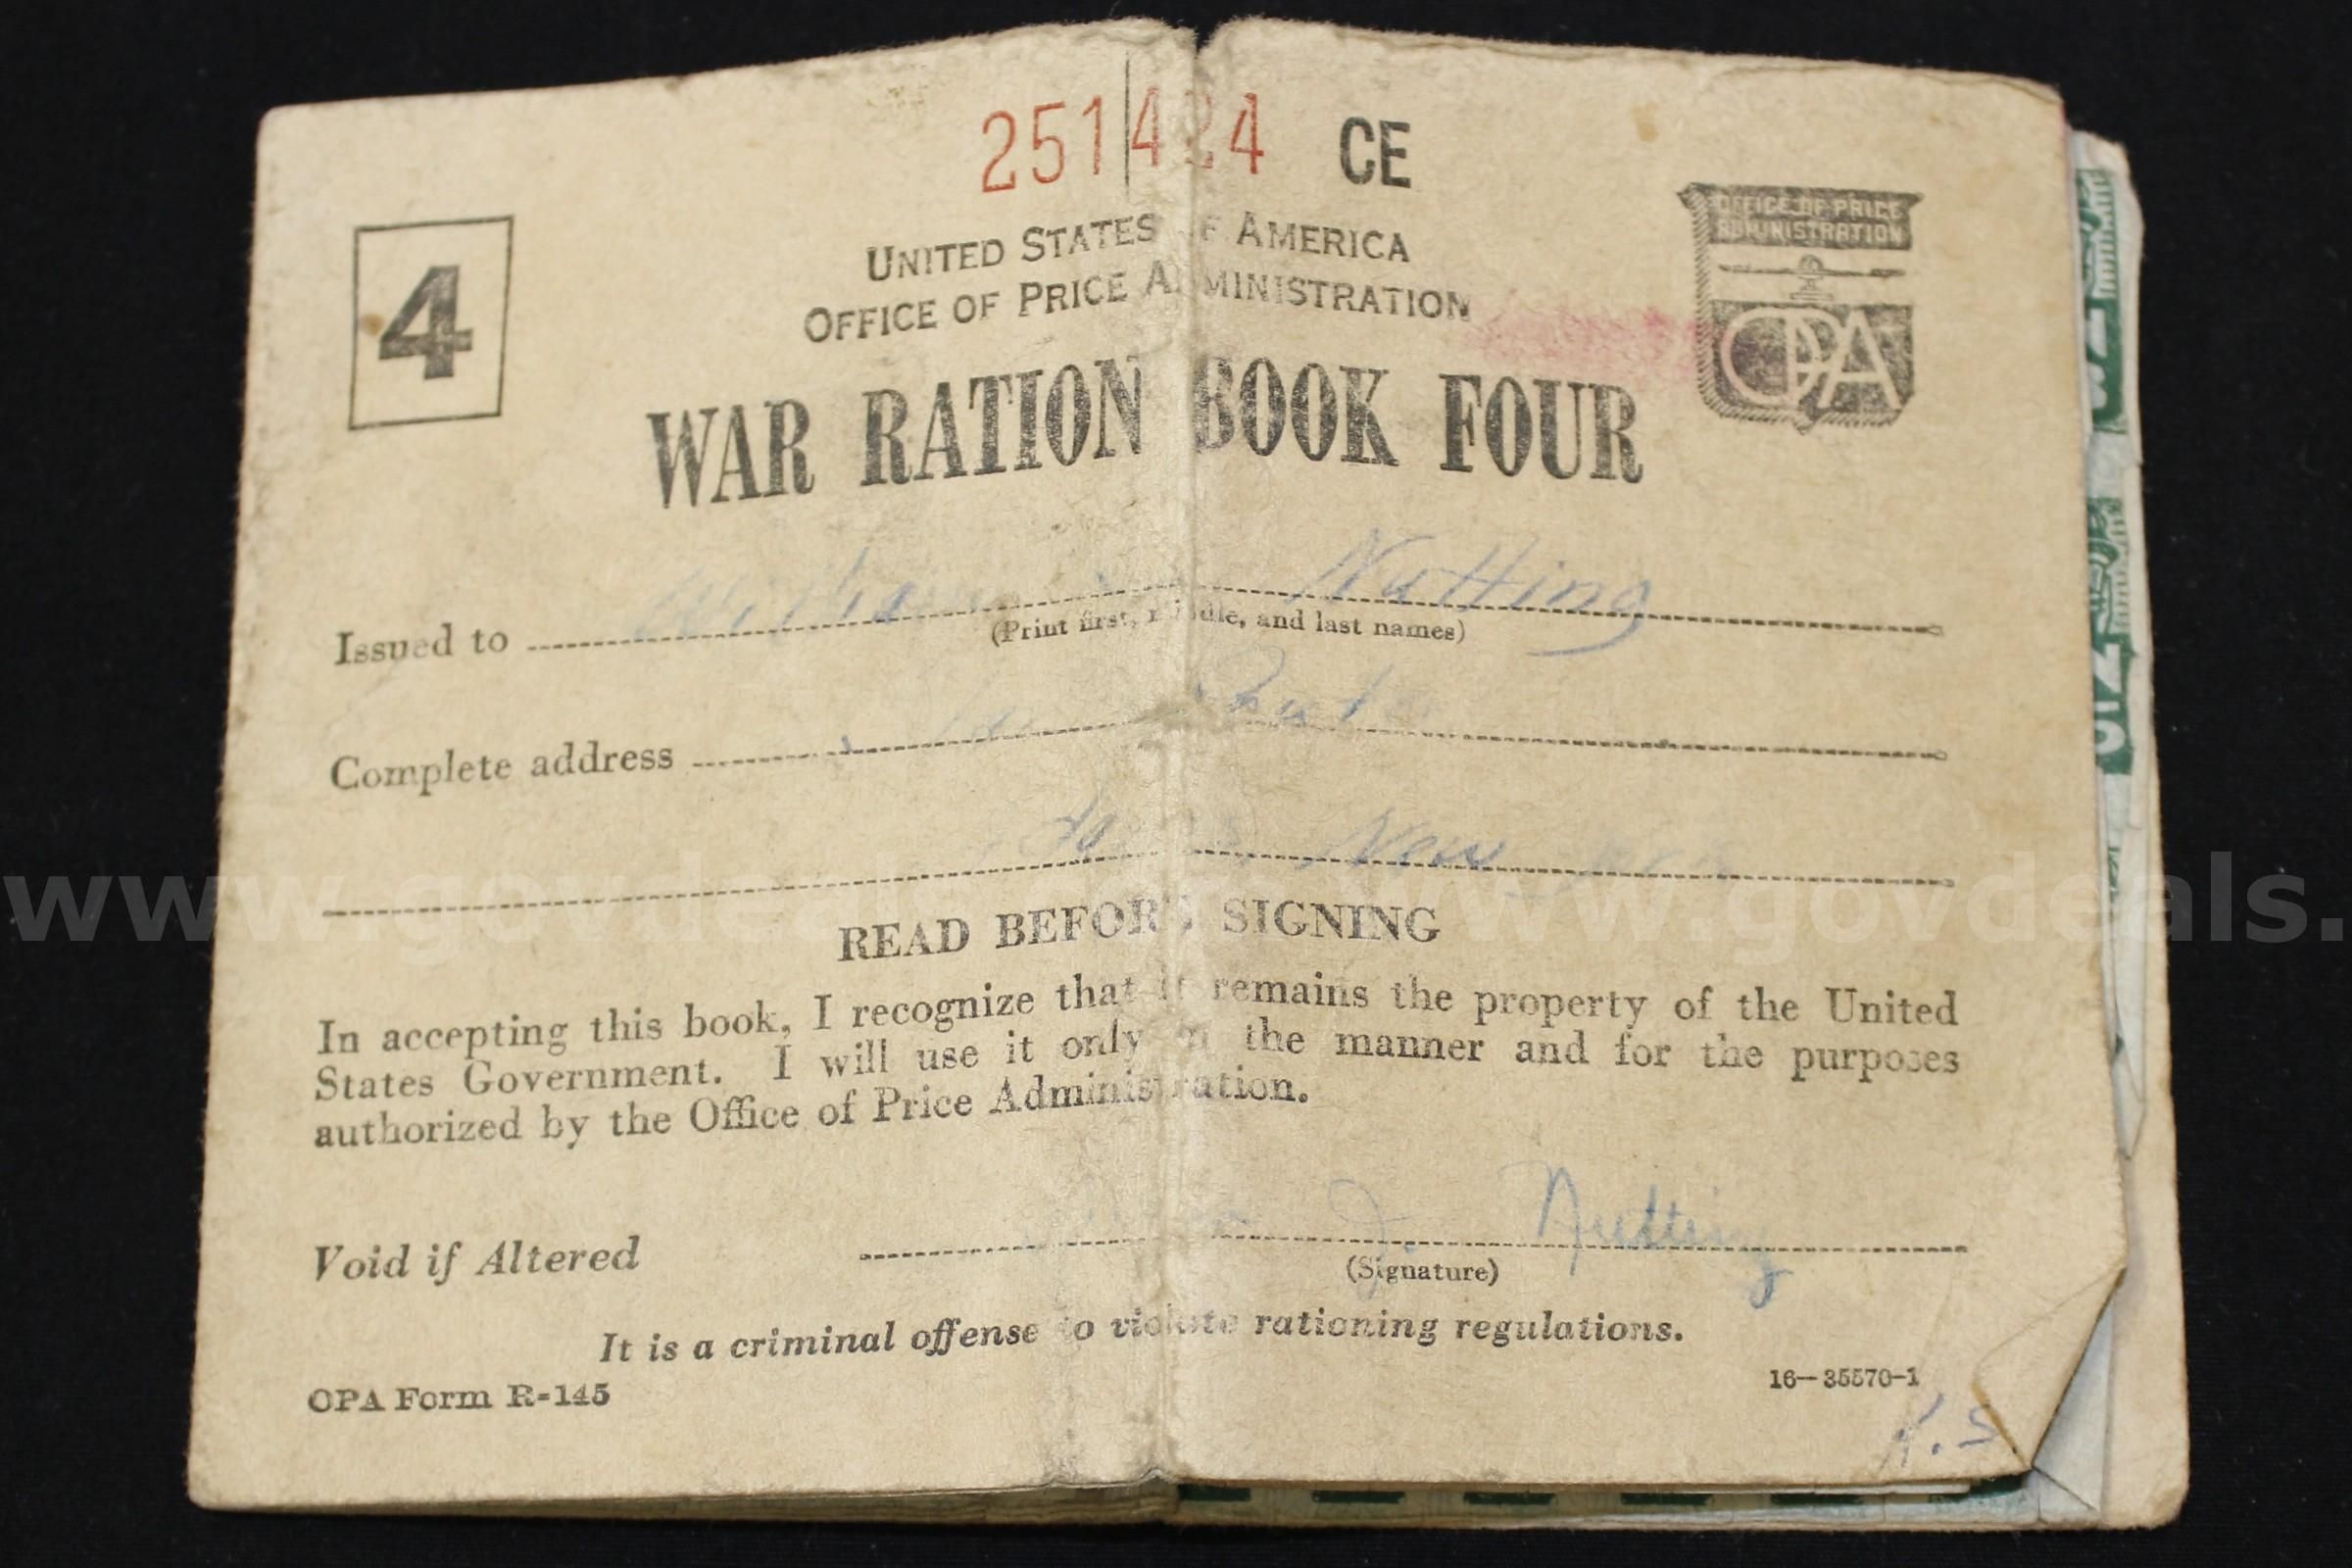 251424 CE
4
UNITED STATES OF AMERICA
OFFICE OF PRICE ADMINISTRATION
OFFICE OF PRICE
ADMINISTRATION
OPA
WAR RATION BOOK FOUR
Issued to William Nutting
(Print first, middle, and last names)
Complete address
New York
READ BEFORE SIGNING
In accepting this book, I recognize that it remains the property of the United
States Government. I will use it only in the manner and for the purposes
authorized by the Office of Price Administration.
Void if Altered J. Nutting
(Signature)
It is a criminal offense to violate rationing regulations.
OPA Form R-145
16—35570-1
K.S
www.govdeals. www.govdeals.